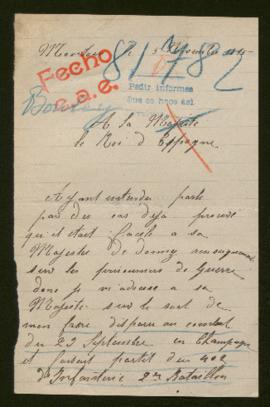 Fecho
c.a.e.
8/1782
Pedir informes
que se hace así
A la Majesté
le Roi d'Espagne
Ayant entendu parlé
par des cas déja prouvé
qu'il était facile a sa
Majesté de donner renseignement
sur les prisonniers de Guerre
donc je m'adresse a sa
Majesté sur le sort de
mon frère disparu au combat
du 29 Septembre en Champagne
et faisait partit du 402
d'Infanterie 2me Bataillon